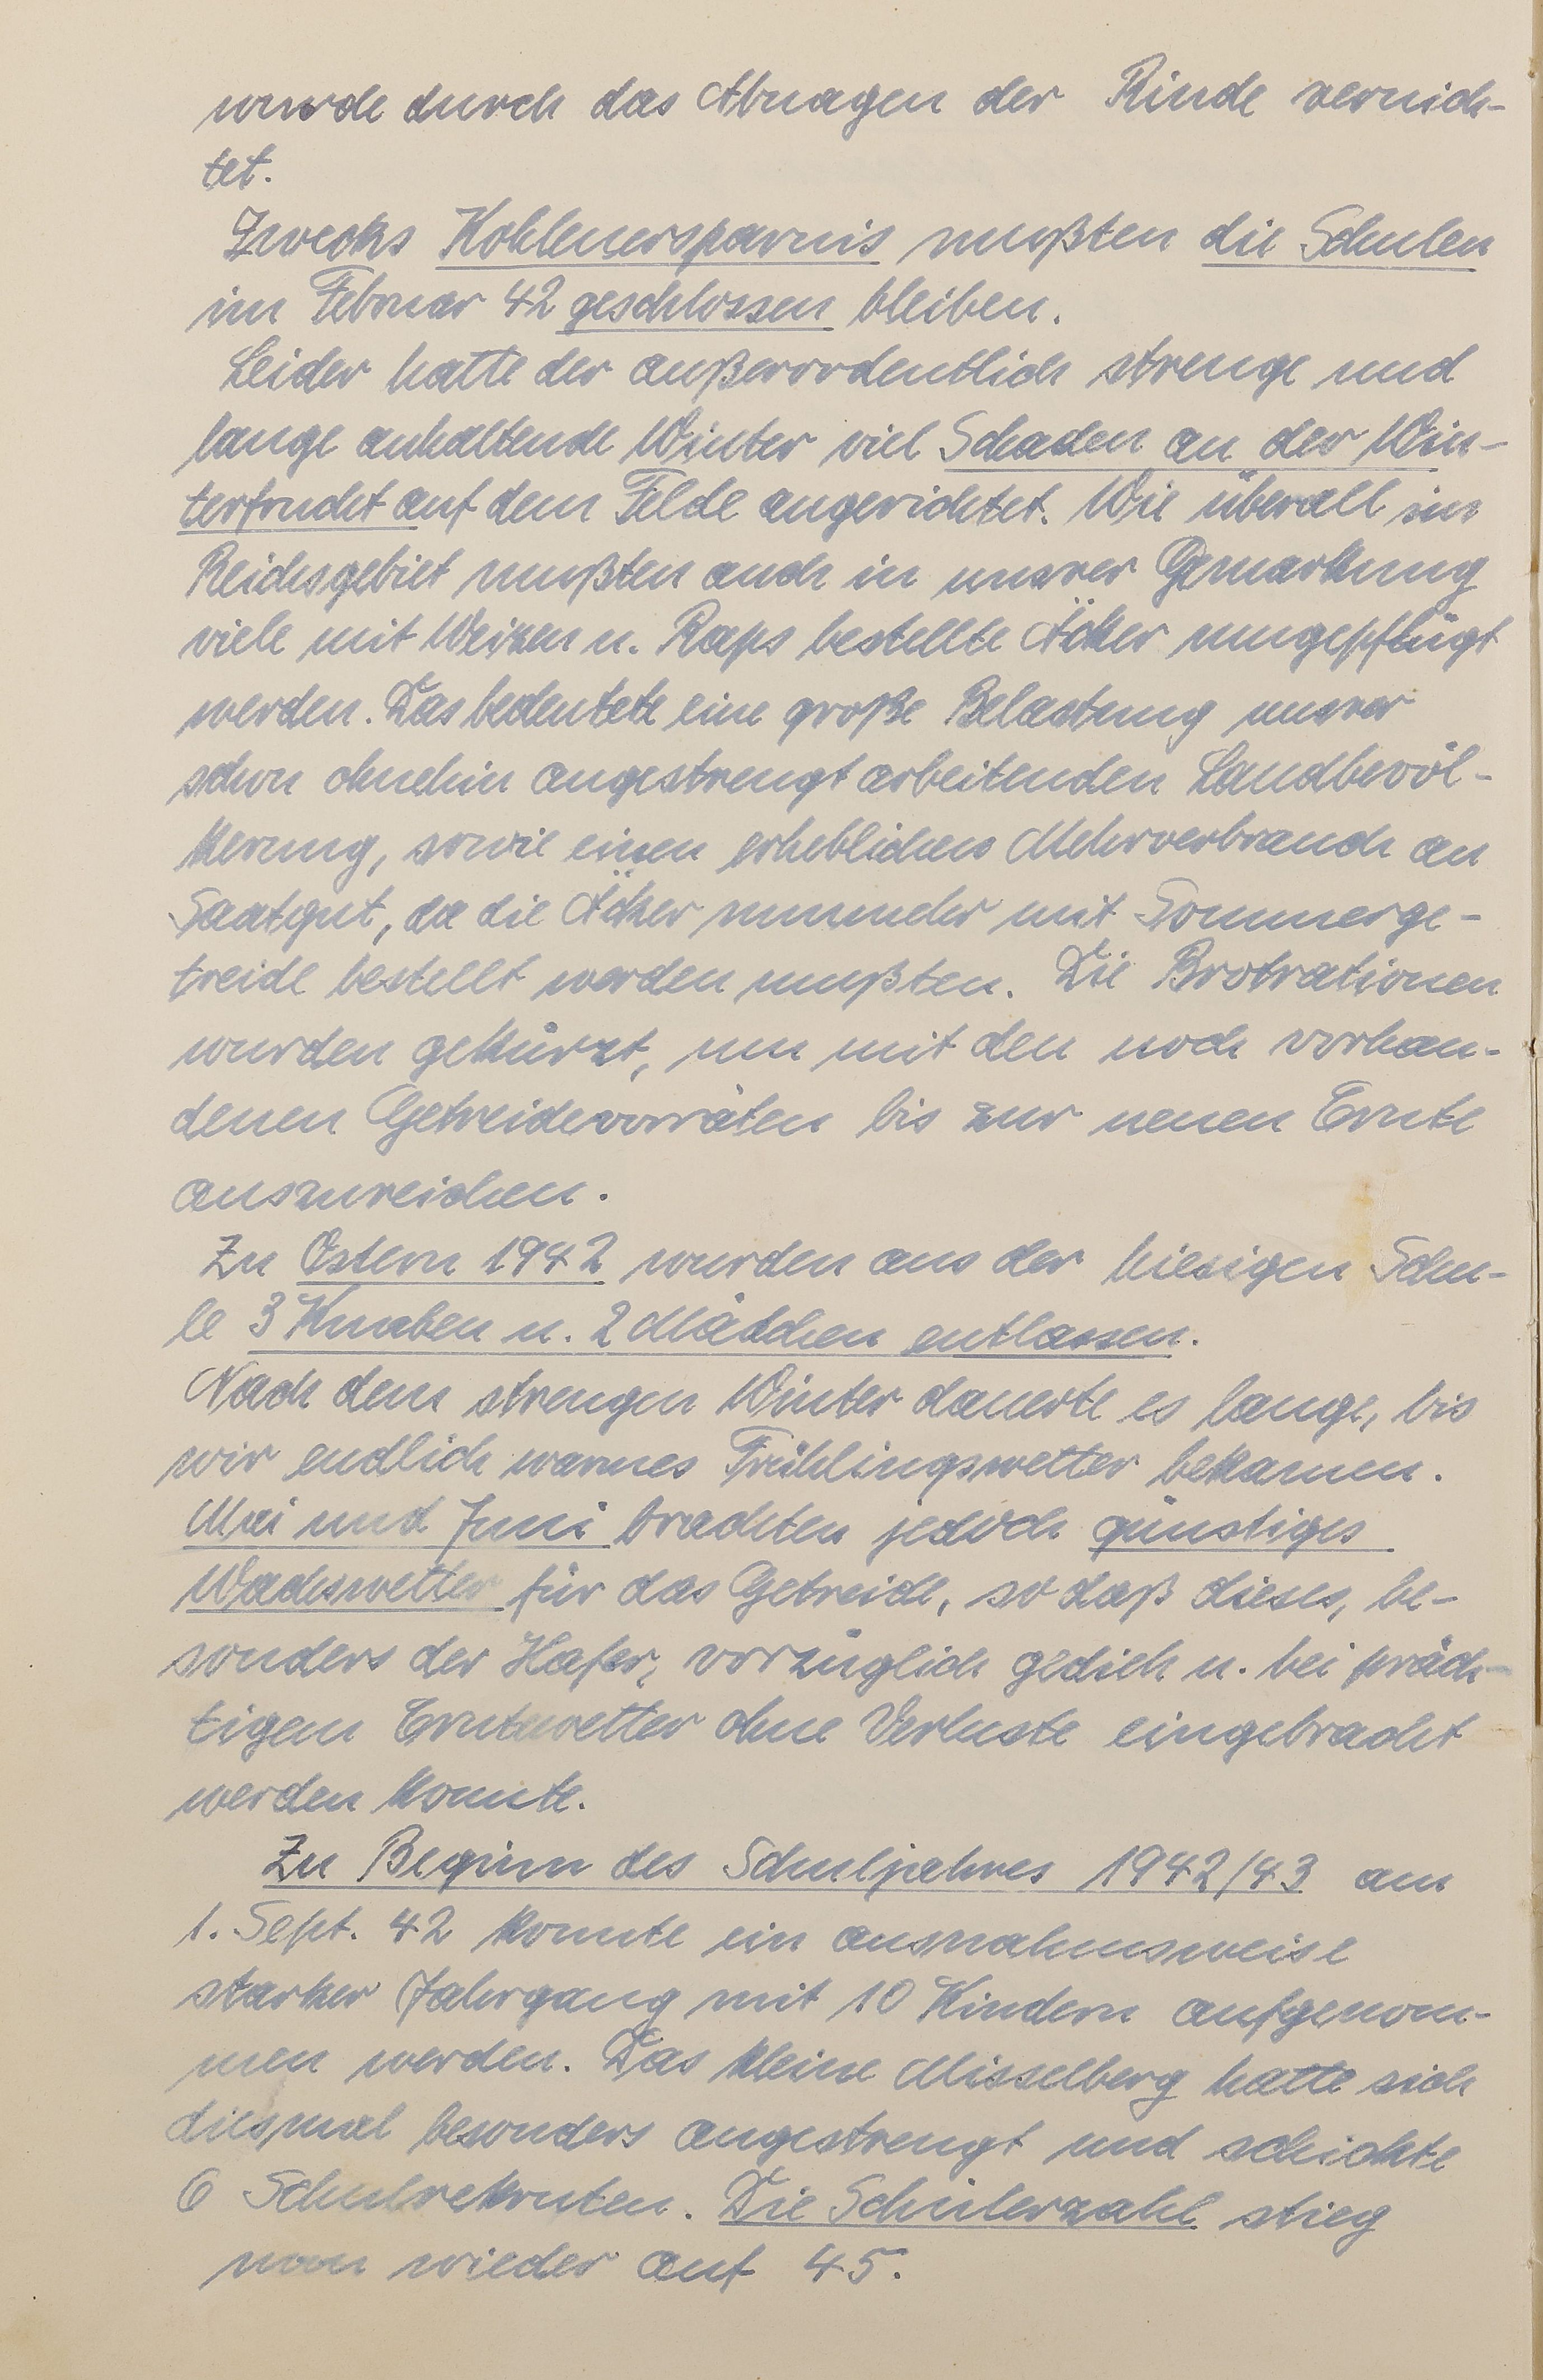 wurde durch das Abnagen der Rinde vernich-
tet.
Zwecks Kohlenersparnis mußten die Schulen
im Februar 42 geschlossen bleiben.
Leider hatte der außerordentlich strenge und
lange anhaltende Winter viel Schaden an der Win-
terfrucht auf dem Felde angerichtet. Wie überall im
Reichsgebiet mußten auch in unsrer Gemarkung
viele mit Weizen u. Raps bestellte Äcker umgepflügt
werden. Das bedeutete eine große Belastung unsrer
schon ohnehin angestrengt arbeitenden Landbevöl-
kerung, sowie einen erheblichen Mehrverbrauch an
Saatgut, da die Äcker nunmehr mit Sommerge-
treide bestellt werden mußten. Die Brotrationen
wurden gekürzt, um mit den noch vorhan-
denen Getreidevorräten bis zur neuen Ernte
auszureichen.
Zu Ostern 1942 wurden aus der hiesigen Schu-
le 3 Knaben u. 2 Mädchen entlassen.
Nach dem strengen Winter dauerte es lange, bis
wir endlich warmes Frühlingswetter bekamen.
Mai und Juni brachten jedoch günstiges
Wachswetter für das Getreide, so daß dieses, be-
sonders der Hafer, vorzüglich gedieh u. bei präch-
tigem Erntewetter ohne Verluste eingebracht
werden konnte.
Zu Beginn des Schuljahres 1942/43 am
1. Sept. 42 konnte ein ausnahmsweise
starker Jahrgang mit 10 Kindern aufgenom-
men werden. Das kleine Misselberg hatte sich
diesmal besonders angestrengt und schickte
6 Schulrekruten. Die Schülerzahl stieg
nun wieder auf 45.